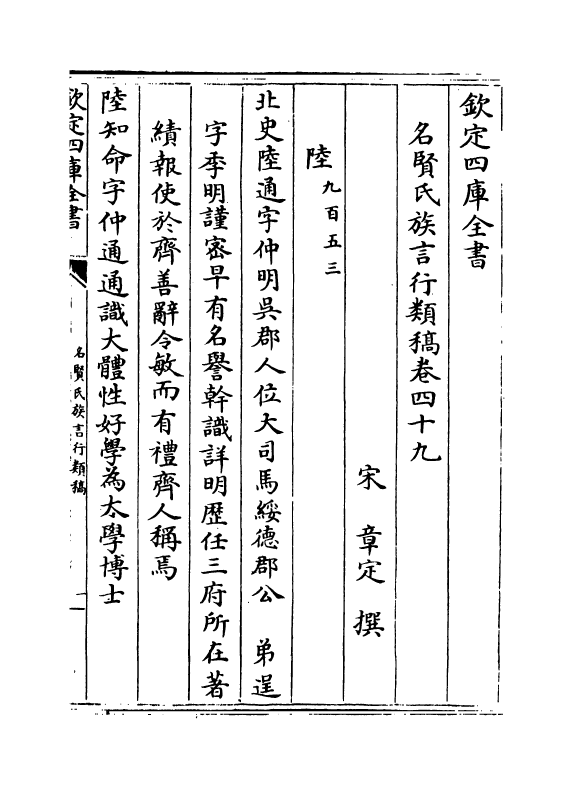 欽定四庫全書
名賢氏族言行類稿卷四十九
宋 章定 撰
陸 九百五三
北史陸通字仲明吳郡人位大司馬綏德郡公 弟逞
字季明謹密早有名譽幹識詳明歴任三府所在著
績報使於齊善辭令敏而有禮齊人稱焉
陸知命字仲通通識大體性好學為太學博士
欽定四庫全書
名賢氏族言行類稿
一